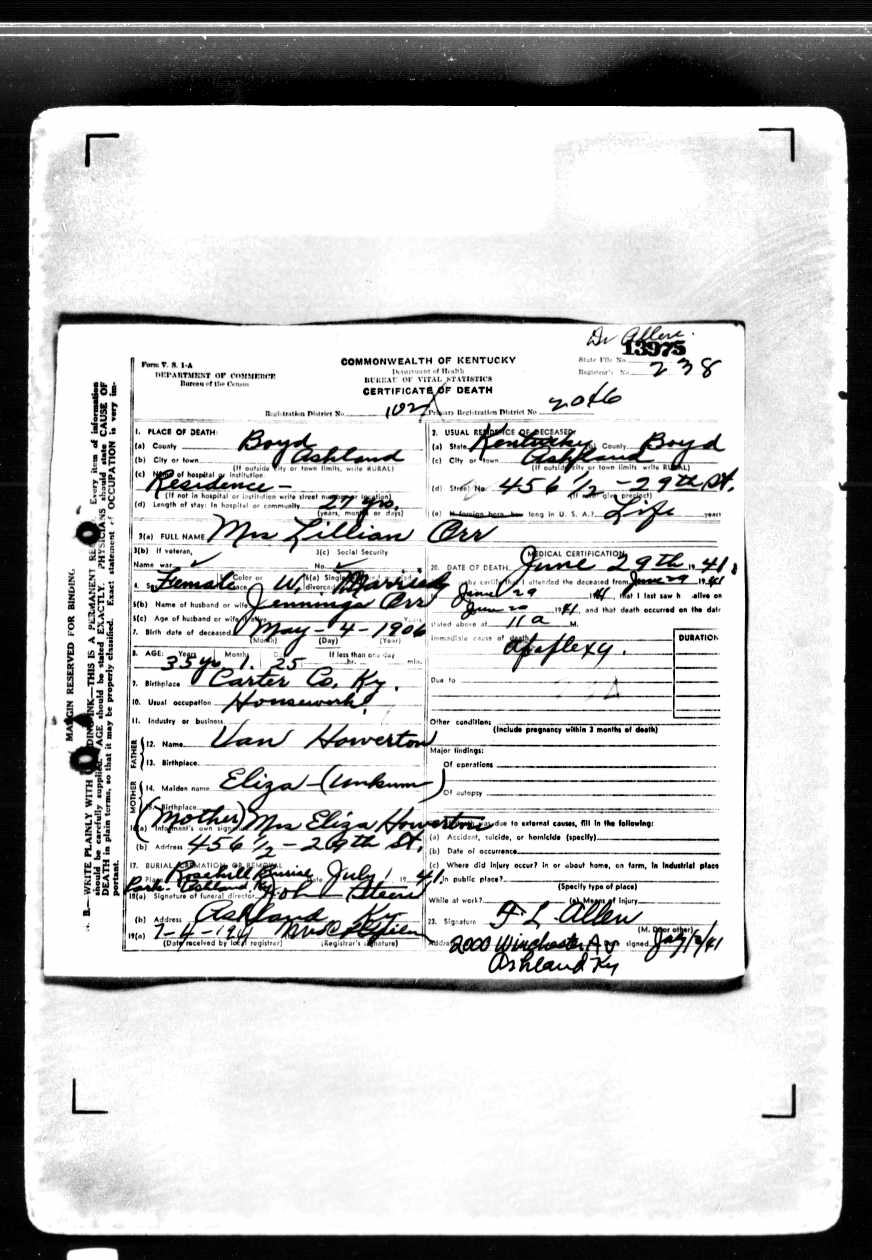 Dr Allen.
13975
Form V. S. 1-A
COMMONWEALTH OF KENTUCKY
State File No.
DEPARTMENT OF COMMERCE
Department of Health
Registrar's No. 238
Bureau of the Census
BUREAU OF VITAL STATISTICS
CERTIFICATE OF DEATH
Registration District No. 102 Primary Registration District No. 2046
1. PLACE OF DEATH:
(a) County Boyd
(b) City or town Ashland
(If outside city or town limits, write RURAL)
(c) Name of hospital or institution
Residence -
(If not in hospital or institution write street number or location)
(d) Length of stay: In hospital or community 27 yrs.
(years, months or days)
2. USUAL RESIDENCE OF DECEASED
(a) State Kentucky (b) County Boyd
(c) City or town Ashland
(If outside city or town limits write RURAL)
(d) Street No. 456 1/2 - 29th St.
(If rural give precinct)
(e) If foreign born, how long in U. S. A.? Life years
3(a) FULL NAME Mrs Lillian Orr
3(b) If veteran,
Name war
3(c) Social Security
No.
4. Sex Female Color or race W. 6(a) Single divorced Married
5(b) Name of husband or wife Jennings Orr
5(c) Age of husband or wife if alive Years
7. Birth date of deceased May - 4 - 1906
(Month) (Day) (Year)
8. AGE: Years Months Days If less than one day
35 yrs 1. 25 hr. min.
9. Birthplace Carter Co. Ky.
10. Usual occupation Housework
11. Industry or business
FATHER
12. Name Van Howerton
13. Birthplace
MOTHER
14. Maiden name Eliza - (Unknown)
15. Birthplace
(Mother)
16(a) Informant's own signature Mrs Eliza Howerton
(b) Address 456 1/2 - 29th St.
17. BURIAL, CREMATION OR REMOVAL
Place Rosehill Burial Park - Ashland Ky Date July 1 1941
18(a) Signature of funeral director John Steen
(b) Address Ashland Ky
19(a) 7-4-1941
(Date received by local registrar) (Registrar's signature)
MEDICAL CERTIFICATION
20. DATE OF DEATH June 29th 1941
I hereby certify that I attended the deceased from June 29 1941
June 29 1941 that I last saw h alive on
1941, and that death occurred on the date
stated above at 11 a M.
Immediate cause of death
Apoplexy.
DURATION
Due to
Other conditions
(Include pregnancy within 3 months of death)
Major findings:
Of operations
Of autopsy
If death was due to external causes, fill in the following:
(a) Accident, suicide, or homicide (specify)
(b) Date of occurrence
(c) Where did injury occur? in or about home, on farm, in industrial place
in public place?
(Specify type of place)
While at work? (e) Means of injury
23. Signature F L Allen
(M. D. or other)
Address 2000 Winchester Av Date signed July 1/41
Ashland Ky
MARGIN RESERVED FOR BINDING
N. B.—WRITE PLAINLY WITH UNFADING INK—THIS IS A PERMANENT RECORD. Every item of information
should be carefully supplied. AGE should be stated EXACTLY. PHYSICIANS should state CAUSE OF
DEATH in plain terms, so that it may be properly classified. Exact statement of OCCUPATION is very im-
portant.